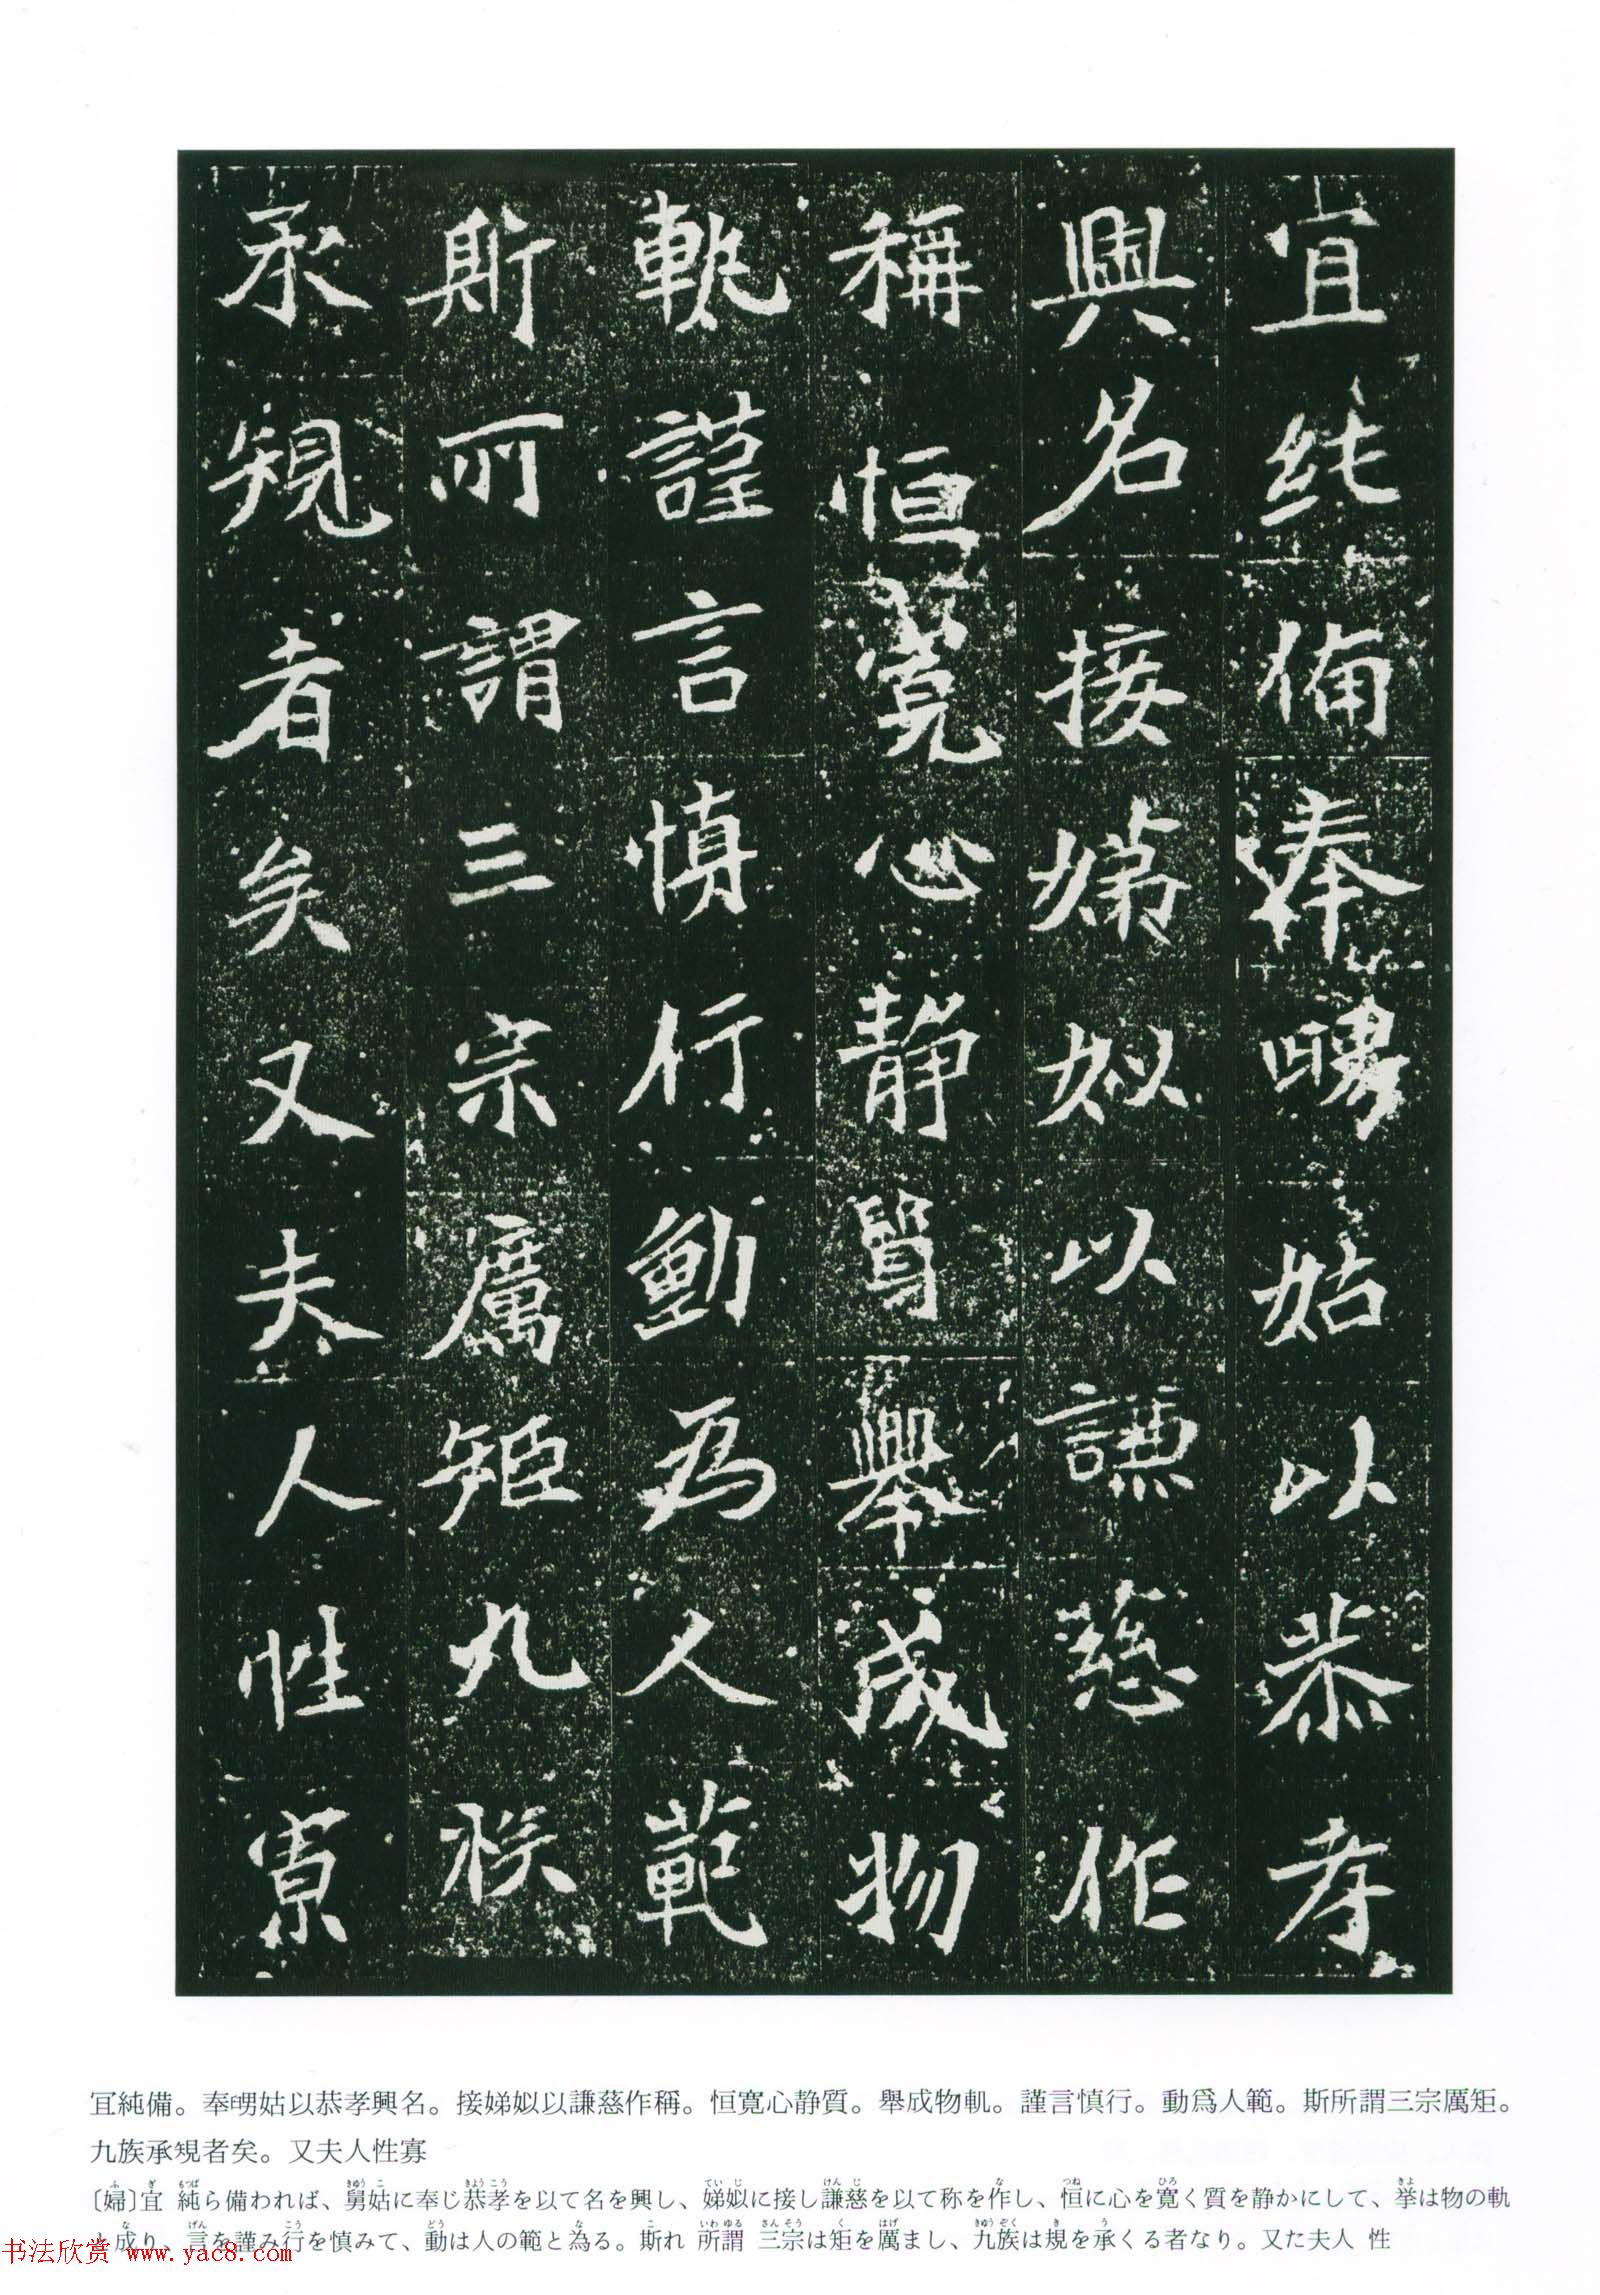 宜純備奉甥姑以恭孝
興名接娣姒以謙慈作
稱恒寬心静質舉成物
軌謹言慎行動為人範
斯所謂三宗厲矩九族
承規者矣又夫人性寡
冝純備。奉甥姑以恭孝興名。接娣姒以謙慈作稱。恒寛心静質。舉成物軌。謹言慎行。動爲人範。斯所謂三宗厲矩。
九族承規者矣。又夫人性寡
〔婦〕宜 純ら備われば、舅姑に奉じ恭孝を以て名を興し、娣姒に接し謙慈を以て称を作し、恒に心を寛く質を静かにして、挙は物の軌
成り、言を謹み行を慎みて、動は人の範と為る。斯れ 所謂 三宗は矩を厲まし、九族は規を承くる者なり。又た夫人 性
书法欣赏 www.yac8.com